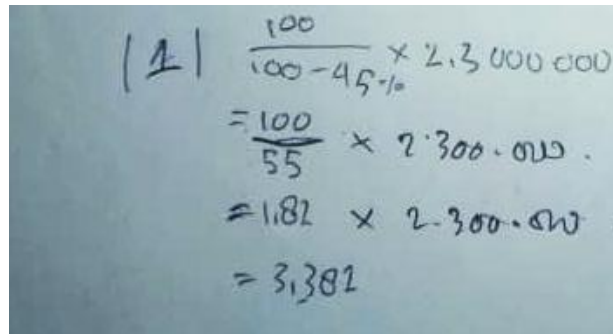 (1) 100 / 100 - 45% × 2.3 000 000
= 100 / 55 × 2.300.000.
= 1,82 × 2.300.000
= 3,382